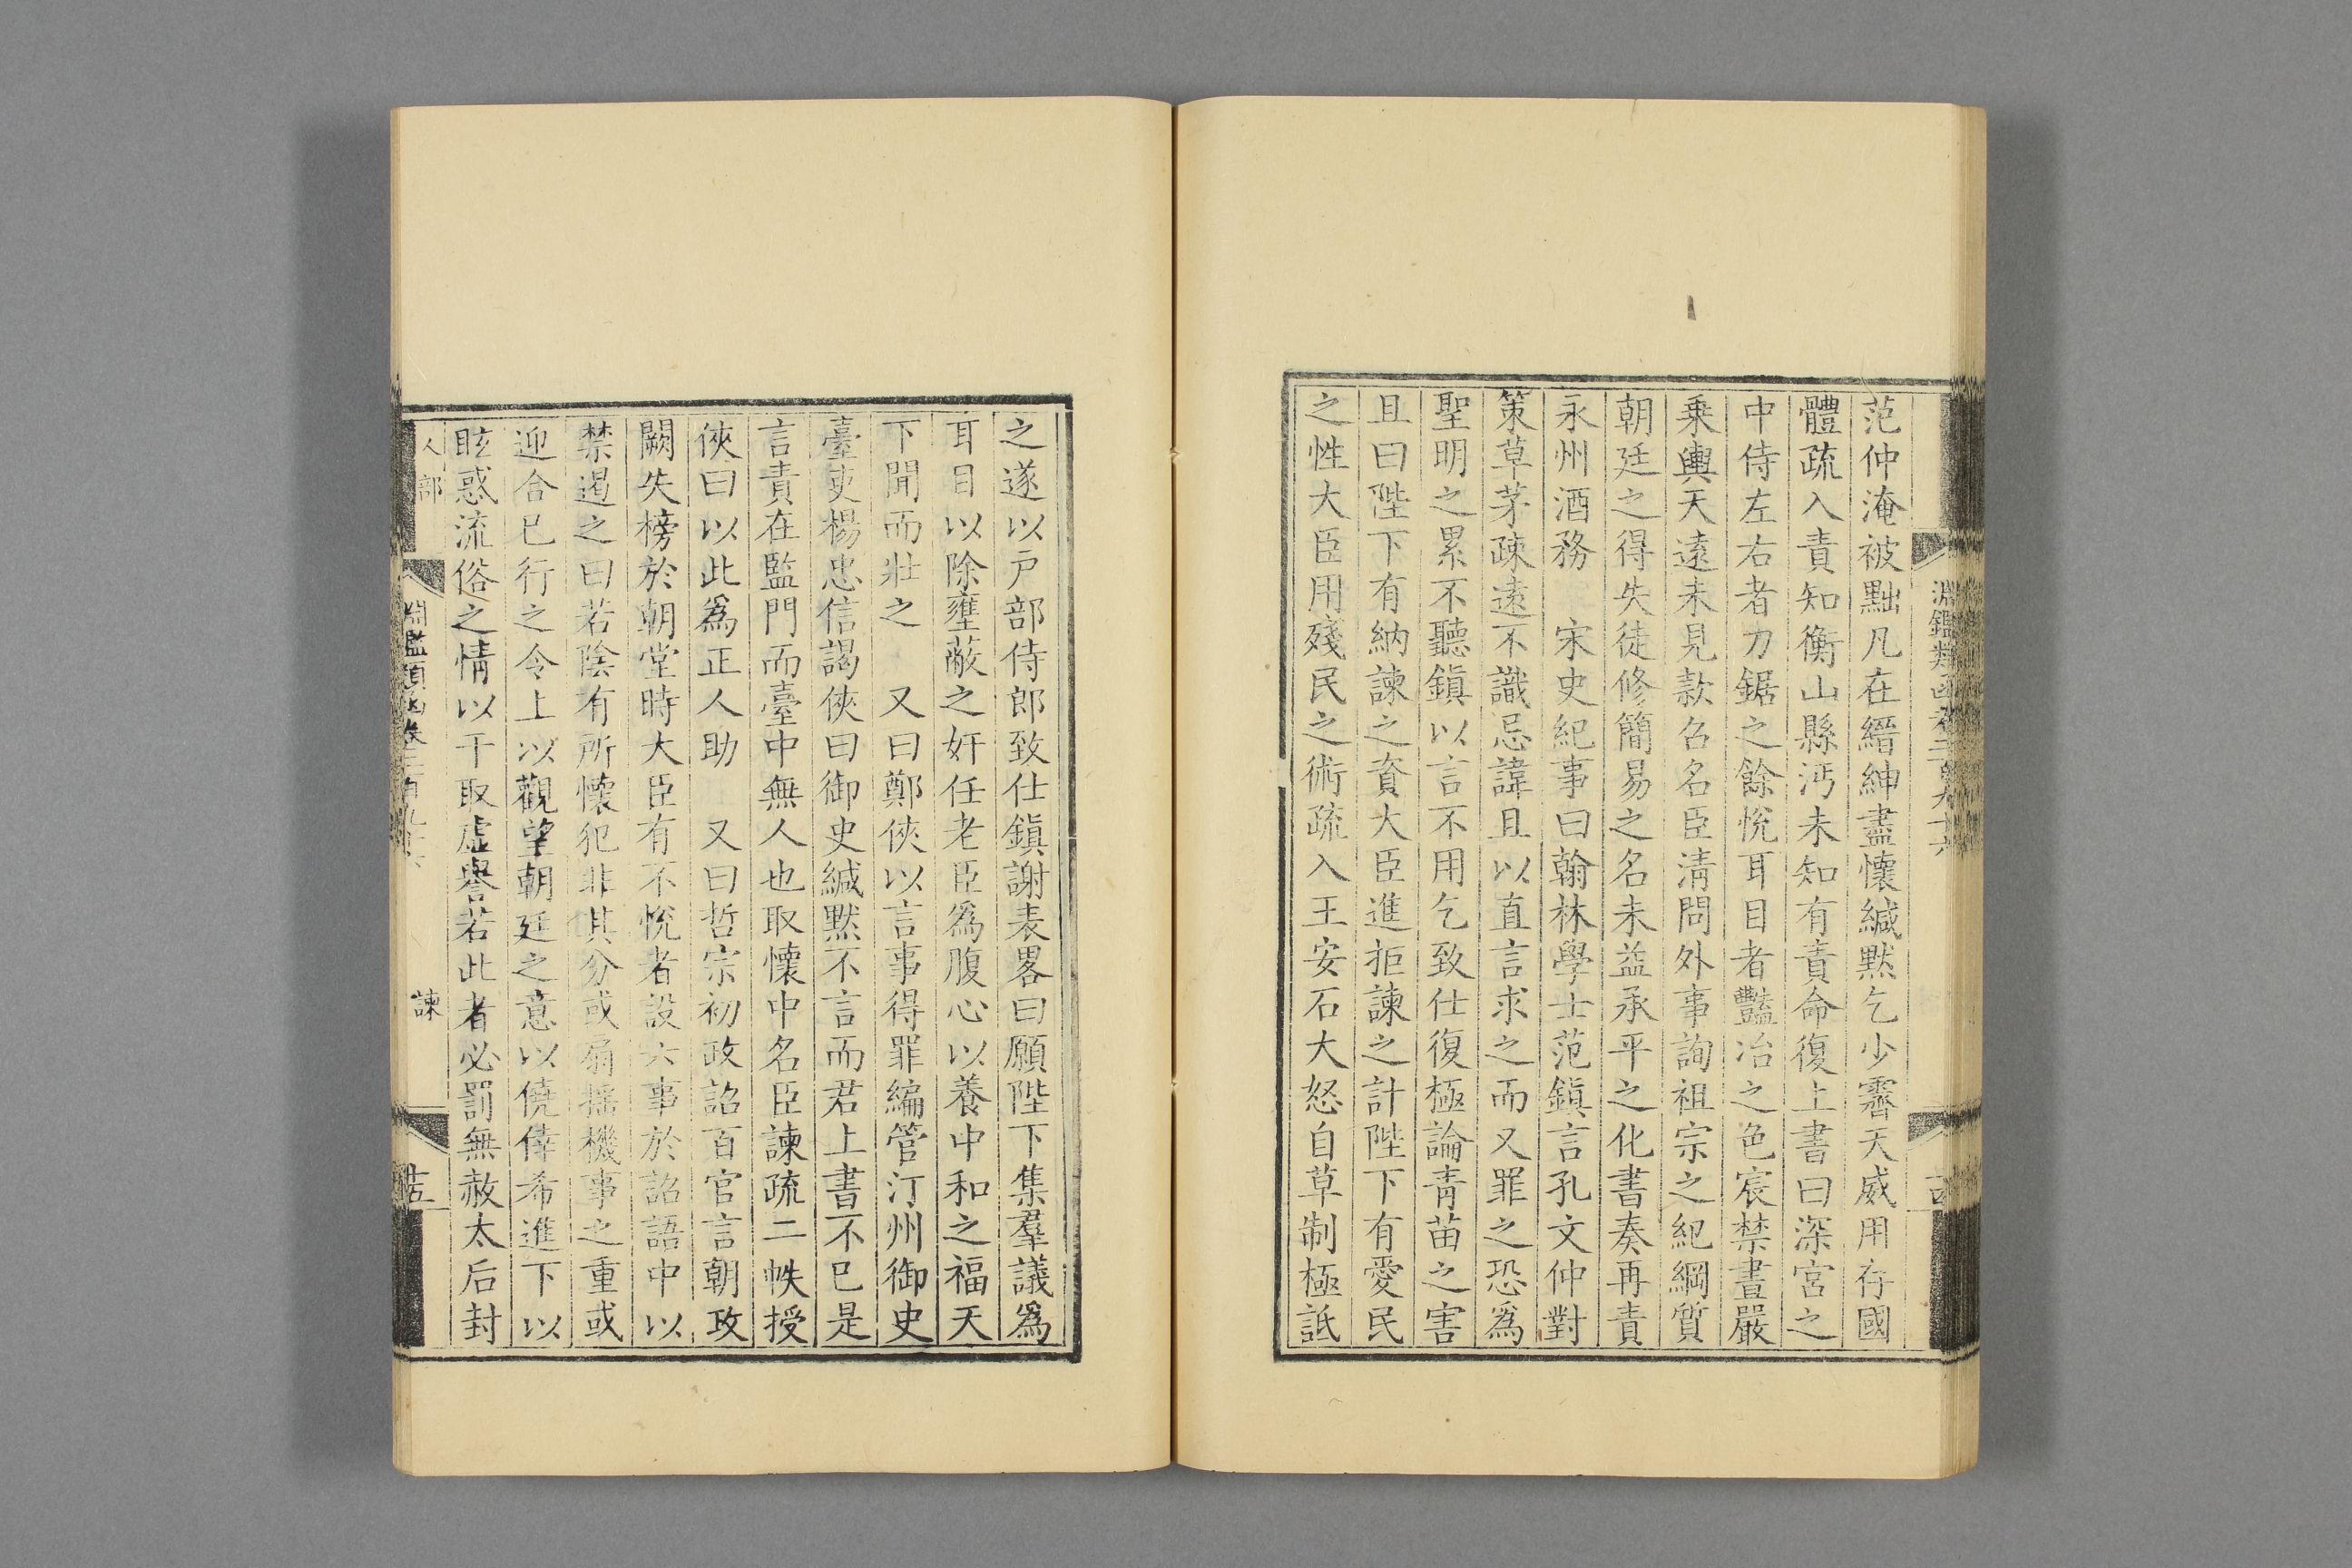 范仲淹被黜凡在縉紳盡懷緘默乞少霽天威用存國
體疏入責知衡山縣沔未知有責命復上書曰深宮之
中侍左右者刀鋸之餘悅耳目者豔冶之色宸禁晝嚴
乗輿天遠未見款名名臣清問外事詢祖宗之紀綱質
朝廷之得失徒修簡易之名未益承平之化書奏再責
永州酒務　宋史紀事曰翰林學士范鎮言孔文仲對
策草茅疎遠不識忌諱且以直言求之而又罪之恐爲
聖明之累不聽鎮以言不用乞致仕復極論青苗之害
且曰陛下有納諫之資大臣進拒諫之計陛下有愛民
之性大臣用殘民之術疏入王安石大怒自草制極詆
之遂以戸部侍郎致仕鎮謝表畧曰願陛下集羣議爲
耳目以除壅蔽之奸任老臣爲腹心以養中和之福天
下聞而壯之　又曰鄭俠以言事得罪編管汀州御史
臺吏楊忠信謁俠曰御史緘默不言而君上書不已是
言責在監門而臺中無人也取懷中名臣諫疏二帙授
俠曰以此爲正人助　又曰哲宗初政詔百官言朝政
闕失榜於朝堂時大臣有不悅者設六事於詔語中以
禁遏之曰若陰有所懷犯非其分或扇搖機事之重或
迎合已行之令上以觀望朝廷之意以僥倖希進下以
眩惑流俗之情以干取虛譽若此者必罰無赦太后封
人部
淵鑑類函卷二百九十六
諫